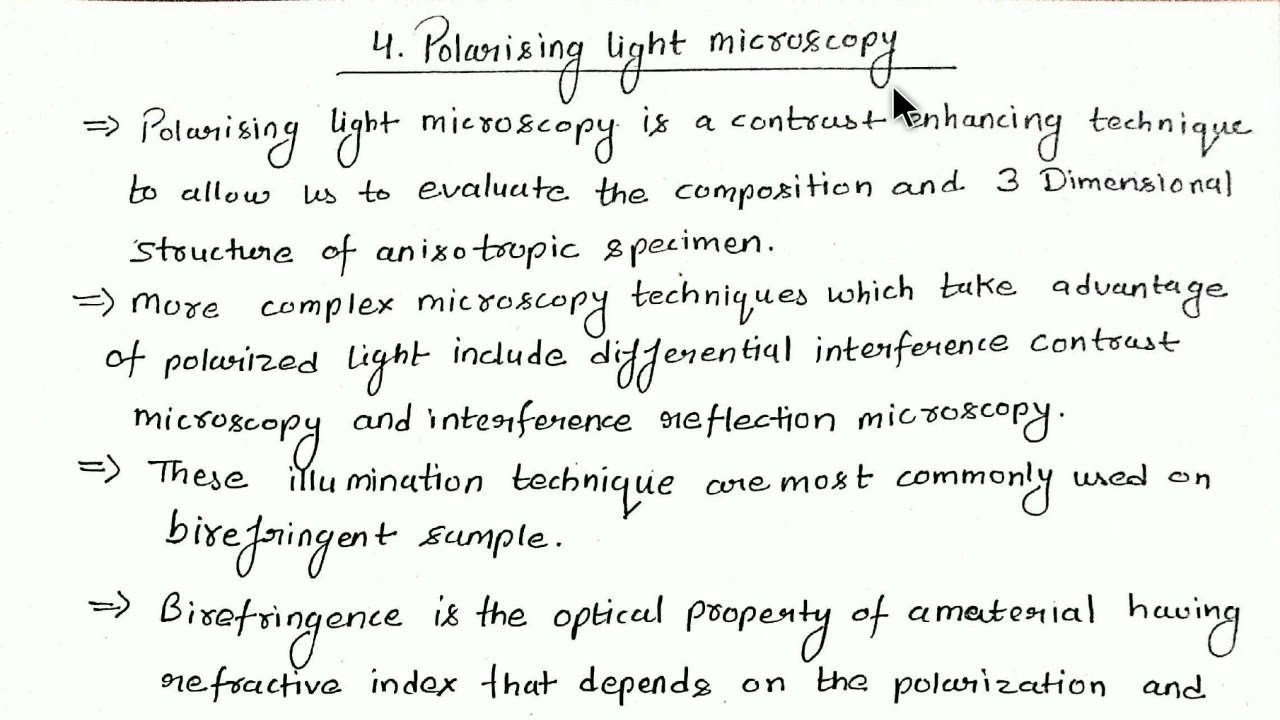 4. Polarising light microscopy
=> Polarising light microscopy is a contrast enhancing technique
to allow us to evaluate the composition and 3 Dimensional
structure of anisotropic specimen.
=> More complex microscopy techniques which take advantage
of polarized light include differential interference contrast
microscopy and interference reflection microscopy.
=> These illumination technique are most commonly used on
birefringent sample.
=> Birefringence is the optical property of a material having
refractive index that depends on the polarization and